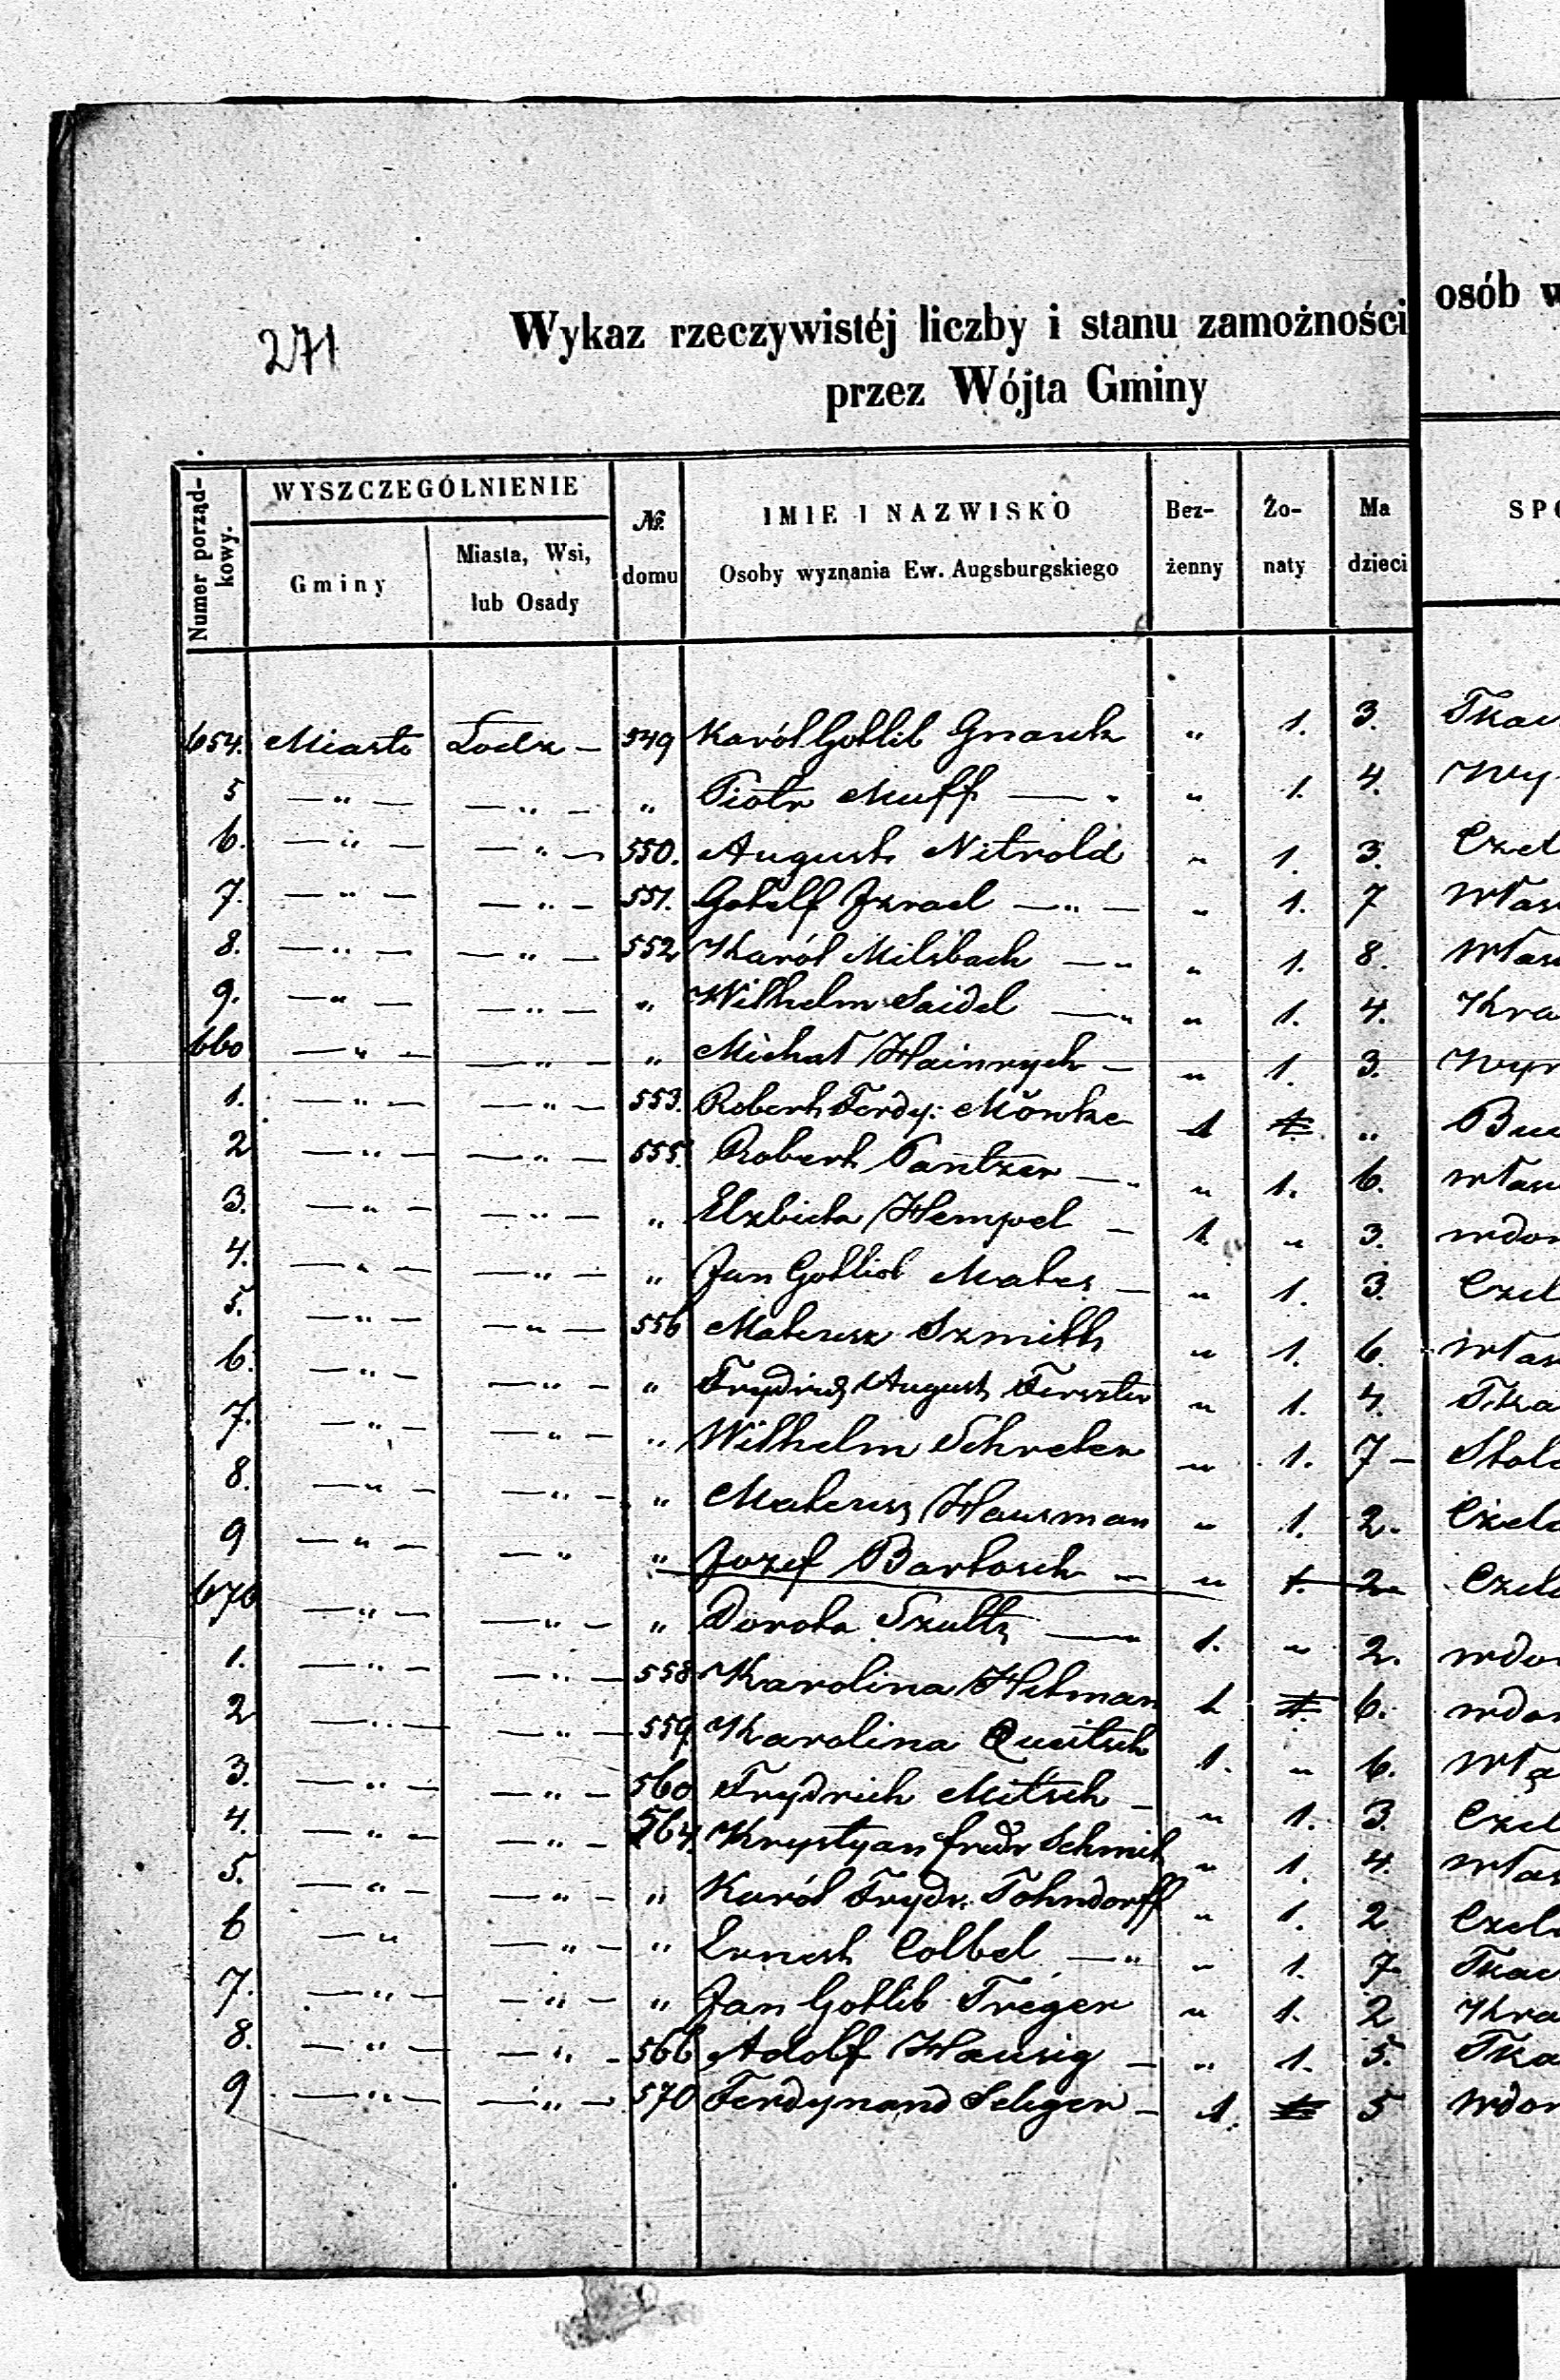 271
Wykaz rzeczywistéj liczby i stanu zamożności osób w
przez Wójta Gminy
Numer porządkowy.
WYSZCZEGÓLNIENIE
Gminy
Miasta, Wsi, lub Osady
№ domu
IMIE I NAZWISKO
Osoby wyznania Ew. Augsburgskiego
Bezżenny
Żonaty
Ma dzieci
SPO
654. Miasto Łodz — 549 Karól Gottlib Gnauk " 1. 3. Tkac
5 — " — — " — " Piotr Muff — " " 1. 4. Wy
6. — " — — " — 550. August Nitrold " 1. 3. Czel
7. — " — — " — 551. Gotelf Izrael — " — " 1. 7 Włas
8. — " — — " — 552 Karól Milsbach — " " 1. 8. Włas
9. — " — — " — " Wilhelm Saidel — " " 1. 4. Kra
660 — " — — " — " Michał Hainrych — " 1. 3. Wyr
1. — " — — " — 553. Robert Ferdy: Mönke 1 1. " Bu
2 — " — — " — 555. Robert Pantzer — " " 1. 6. włas
3. — " — — " — " Elzbieta Hempel — 1. " 3. wdow
4. — " — — " — " Jan Gottlieb Mates — " 1. 3. Czel
5. — " — — " — 556 Mateusz Szmith " 1. 6. włas
6. — " — — " — " Frydrich August Ferszter " 1. 4. Tka
7. — " — — " — " Wilhelm Schreter " 1. 7 — Stol
8. — " — — " — " Mateusz Hausman " 1. 2. Czel
9 — " — — " " Jozef Bartosch — " 1. 2. Czel
670 — " — — " — " Dorota Szultz — 1. " 2. wdo
1. — " — — " — 558 Karolina Hetman 1 1. 6. wdo
2 — " — — " — 559. Karolina Queitsch 1. " 6. Wła
3. — " — — " — 560 Frydrich Mitsch — " 1. 3. Czel
4. — " — — " — 564. Krystyan fredr Schmit " 1. 4. włas
5. — " — — " — " Karól Frydr: Tohndorff " 1. 2 Czel
6 — " — " — " Ernest Colbel — " " 1. 7. Tkac
7. — " — — " — " Jan Gottlib Treger " 1. 2 Kra
8. — " — — " — 566 Adolf Hausig — " 1. 5. Tka
9 — " — — " — 570 Ferdynand Seliger — 1. 1. 5 wdow